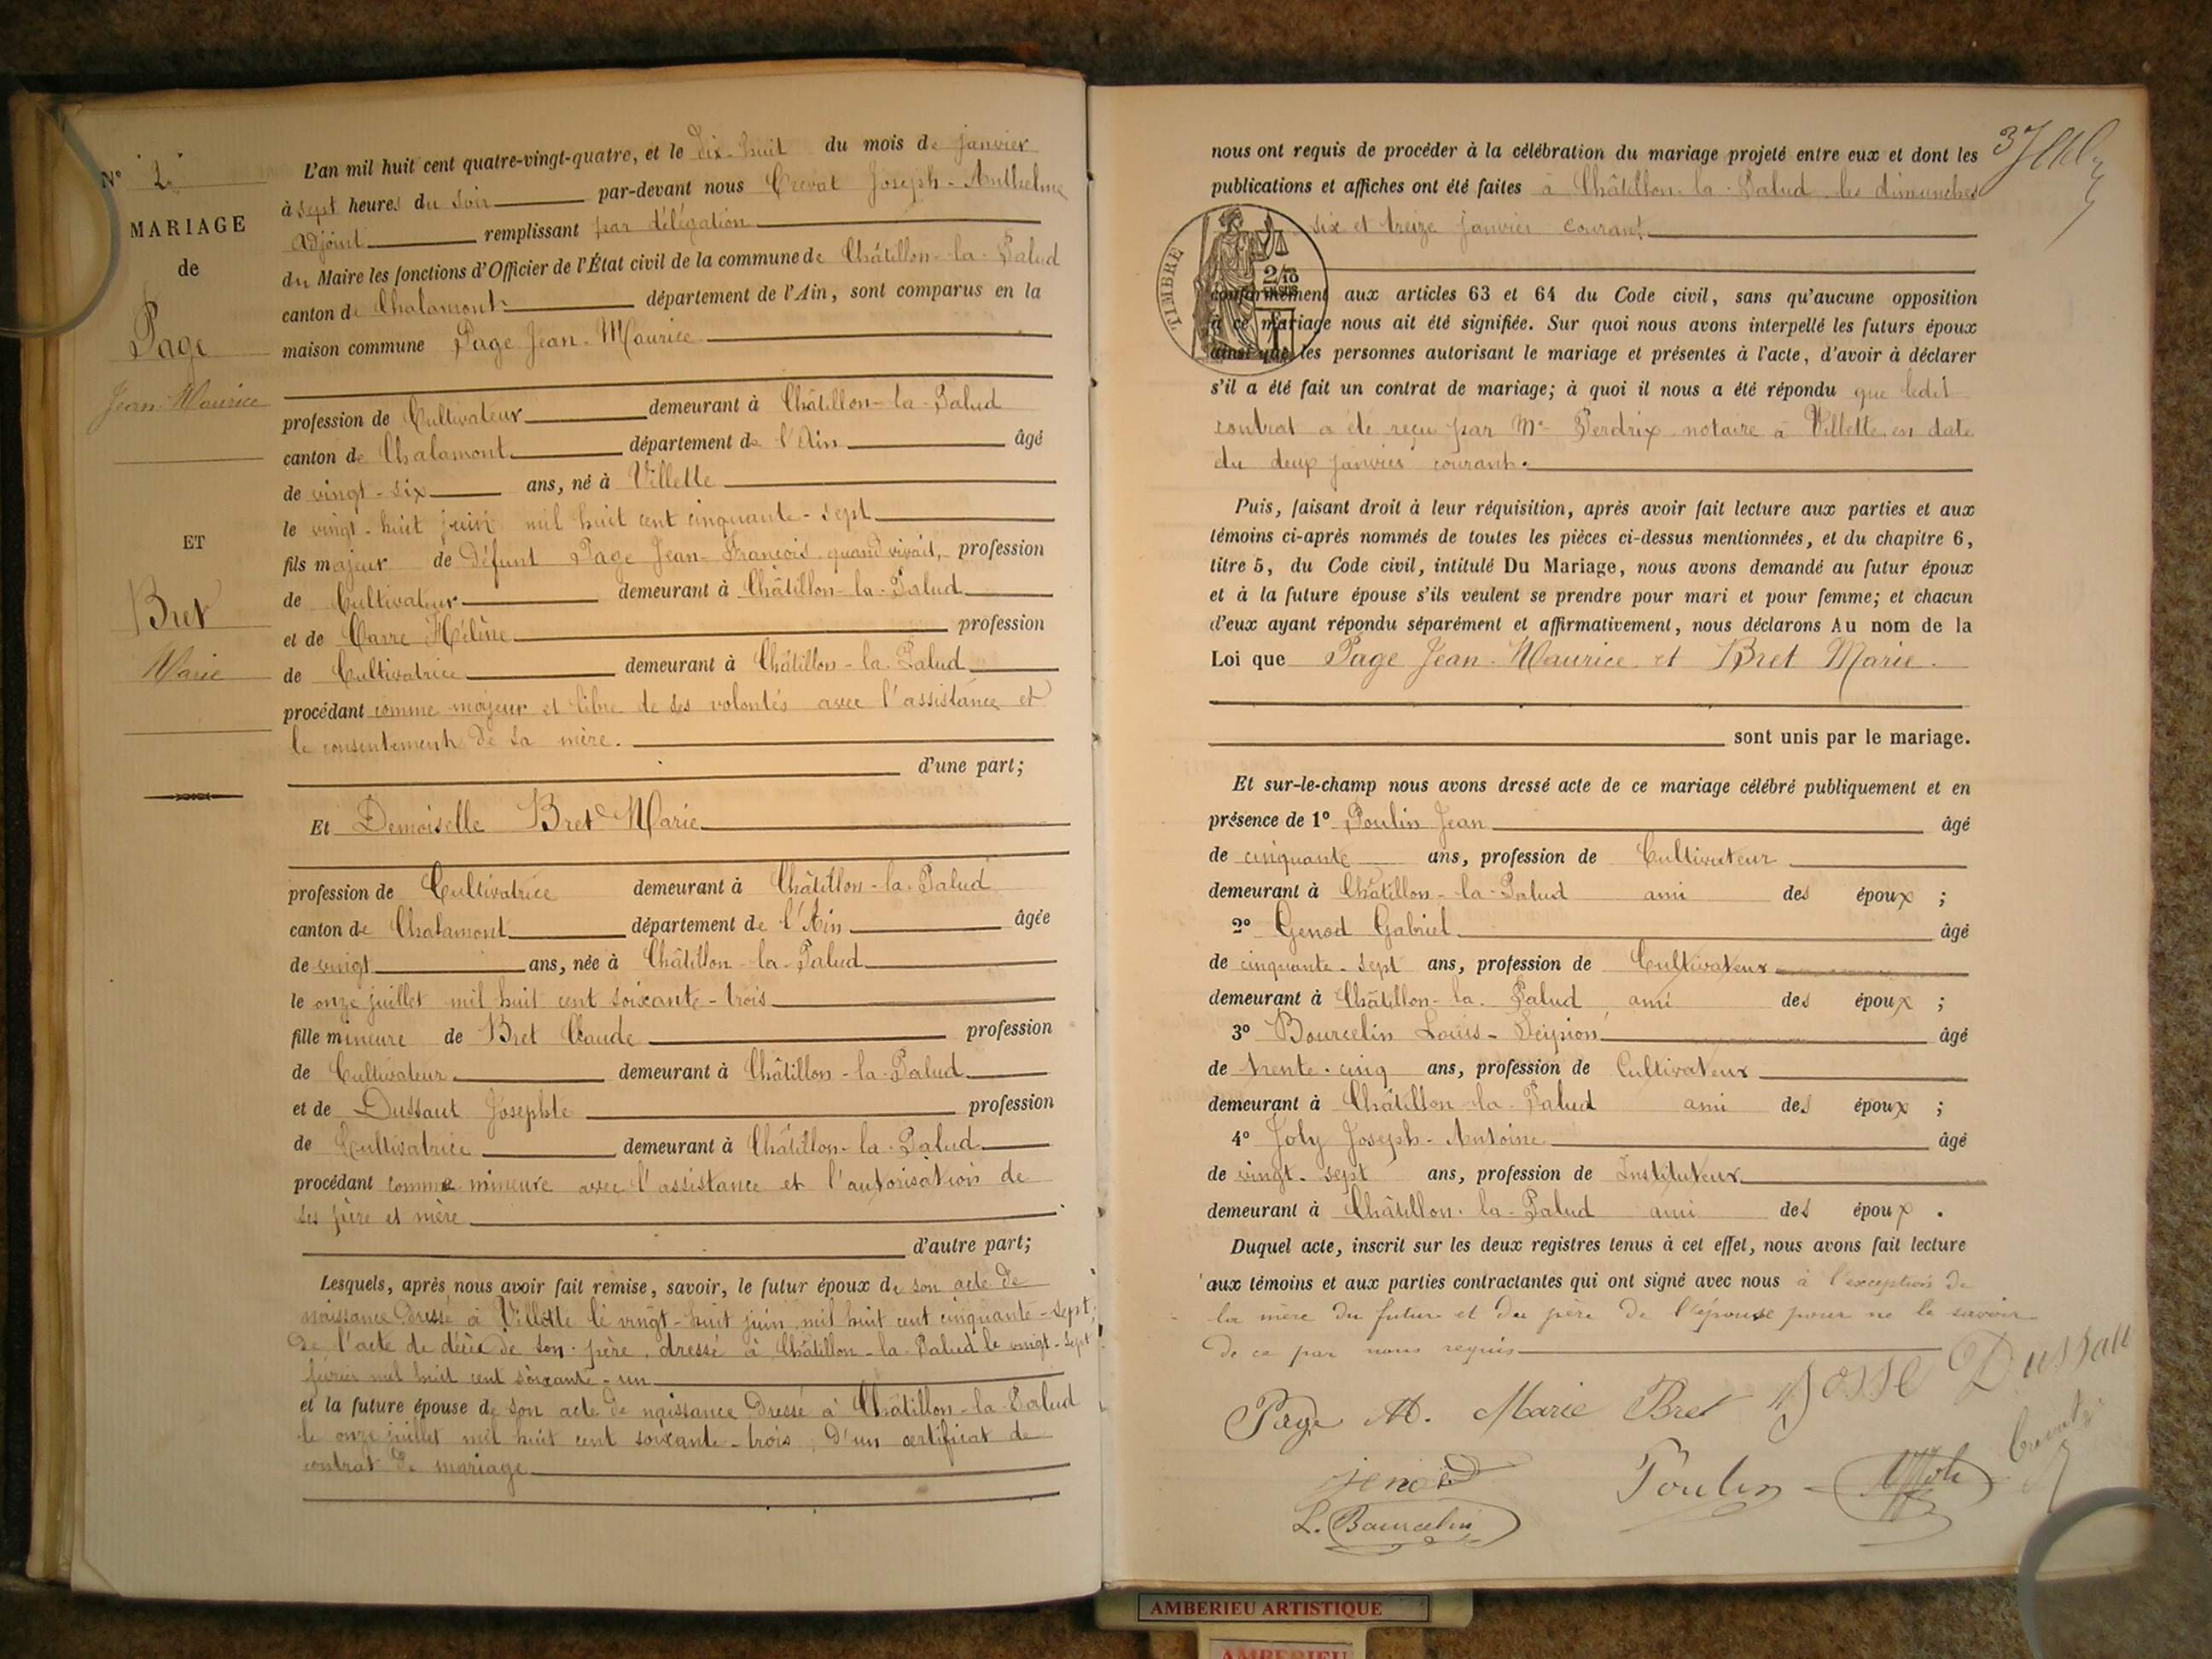 N° 2.
MARIAGE
de
Page
Jean-Maurice
ET
Bret
Marie
L'an mil huit cent quatre-vingt-quatre, et le dix-huit du mois de janvier
à sept heures du soir par-devant nous Crevat Joseph-Anthelme
adjoint remplissant par délégation
du Maire les fonctions d'Officier de l'État civil de la commune de Châtillon-la-Palud
canton de Chalamont département de l'Ain, sont comparus en la
maison commune Page Jean-Maurice
profession de Cultivateur demeurant à Châtillon-la-Palud
canton de Chalamont département de l'Ain âgé
de vingt-six ans, né à Villette
le vingt-huit juin mil huit cent cinquante-sept
fils majeur de défunt Page Jean-François quand vivait, profession
de Cultivateur demeurant à Châtillon-la-Palud
et de Carre Hélène profession
de Cultivatrice demeurant à Châtillon-la-Palud
procédant comme majeur et libre de ses volontés avec l'assistance et
le consentement de sa mère.
d'une part;
Et Demoiselle Bret Marie
profession de Cultivatrice demeurant à Châtillon-la-Palud
canton de Chalamont département de l'Ain âgée
de vingt ans, née à Châtillon-la-Palud
le onze juillet mil huit cent soixante-trois
fille mineure de Bret Claude profession
de Cultivateur demeurant à Châtillon-la-Palud
et de Dussaut Josephte profession
de Cultivatrice demeurant à Châtillon-la-Palud
procédant comme mineure avec l'assistance et l'autorisation de
ses père et mère
d'autre part;
Lesquels, après nous avoir fait remise, savoir, le futur époux de son acte de
naissance dressé à Villette le vingt-huit juin mil huit cent cinquante-sept;
de l'acte de décès de son père, dressé à Châtillon-la-Palud le vingt-sept
février mil huit cent soixante-un
et la future épouse de son acte de naissance dressé à Châtillon-la-Palud
le onze juillet mil huit cent soixante-trois; d'un certificat de
contrat de mariage
nous ont requis de procéder à la célébration du mariage projeté entre eux et dont les
publications et affiches ont été faites à Châtillon-la-Palud les dimanches
six et treize janvier courant
TIMBRE
conformément aux articles 63 et 64 du Code civil, sans qu'aucune opposition
à ce mariage nous ait été signifiée. Sur quoi nous avons interpellé les futurs époux
ainsi que les personnes autorisant le mariage et présentes à l'acte, d'avoir à déclarer
s'il a été fait un contrat de mariage; à quoi il nous a été répondu que ledit
contrat a été reçu par Me Perdrix notaire à Villette en date
du deux janvier courant.
Puis, faisant droit à leur réquisition, après avoir fait lecture aux parties et aux
témoins ci-après nommés de toutes les pièces ci-dessus mentionnées, et du chapitre 6,
titre 5, du Code civil, intitulé Du Mariage, nous avons demandé au futur époux
et à la future épouse s'ils veulent se prendre pour mari et pour femme; et chacun
d'eux ayant répondu séparément et affirmativement, nous déclarons Au nom de la
Loi que Page Jean-Maurice et Bret Marie.
sont unis par le mariage.
Et sur-le-champ nous avons dressé acte de ce mariage célébré publiquement et en
présence de 1° Poulin Jean âgé
de cinquante ans, profession de Cultivateur
demeurant à Châtillon-la-Palud ami des époux ;
2° Genod Gabriel âgé
de cinquante-sept ans, profession de Cultivateur
demeurant à Châtillon-la-Palud ami des époux ;
3° Bourcelin Louis-Scipion âgé
de trente-cinq ans, profession de Cultivateur
demeurant à Châtillon-la-Palud ami des époux ;
4° Joly Joseph-Antoine âgé
de vingt-sept ans, profession de Instituteur
demeurant à Châtillon-la-Palud ami des époux .
Duquel acte, inscrit sur les deux registres tenus à cet effet, nous avons fait lecture
aux témoins et aux parties contractantes qui ont signé avec nous à l'exception de
la mère du futur et du père de l'épouse pour ne le savoir
de ce par nous requis
Page M. Marie Bret Josse Dussau
Genod Poulin
L. Bourcelin
AMBERIEU ARTISTIQUE
AMBERIEU